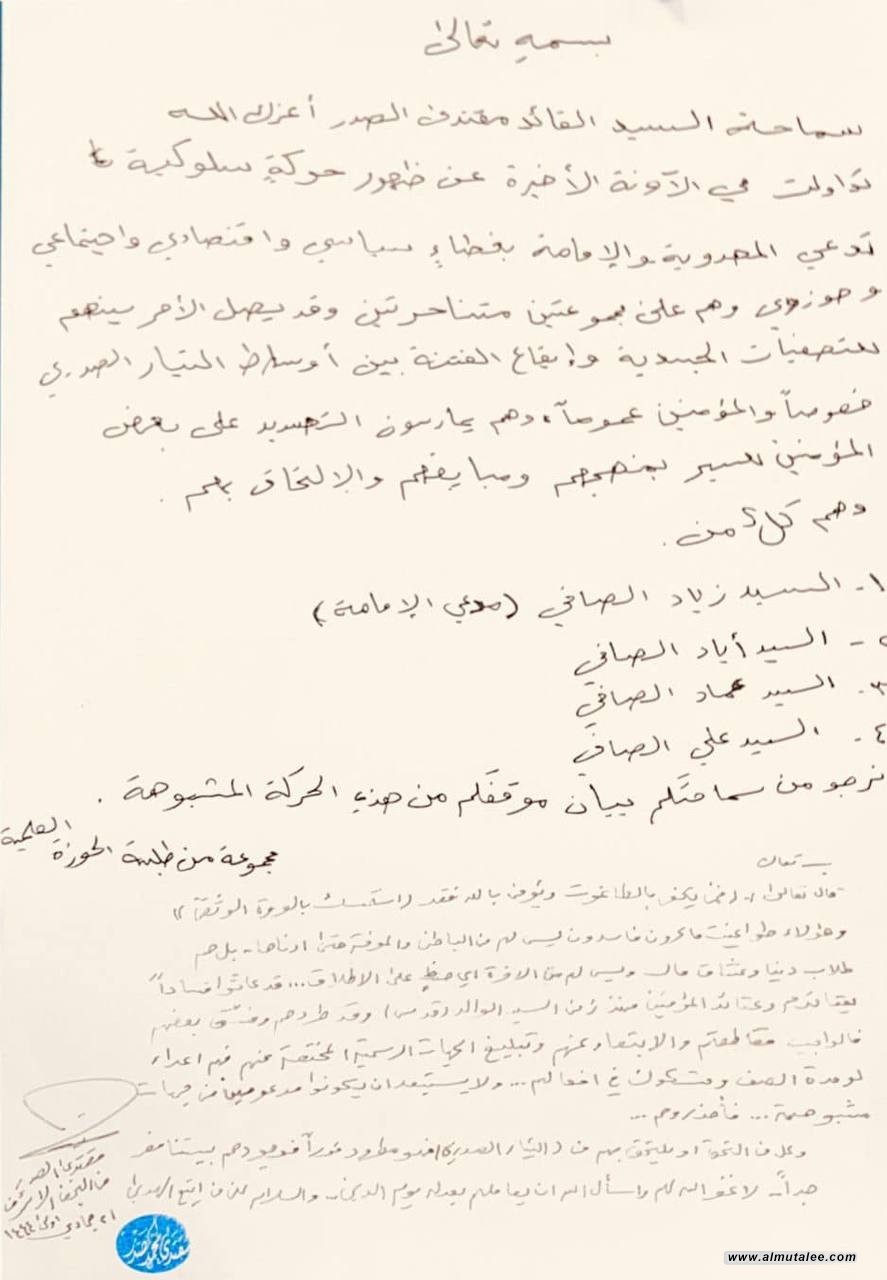 بسمه تعالى
سماحة السيد القائد مقتدى الصدر أعزك الله
تداولت في الآونة الأخيرة عن ظهور حركةٍ سلوكية
تدعي المهدوية والإمامة بغطاءٍ سياسي واقتصادي واجتماعي
وحوزوي وهم على مجموعتين متناحرتين وقد يصل الأمر بينهم
للتصفيات الجسدية وإيقاع الفتنة بين أوساط التيار الصدري
خصوصاً والمؤمنين عموماً، وهم يمارسون التهديد على بعض
المؤمنين للسير بمنهجهم ومبايعتهم والإلتحاق بهم .
وهم كلٌ من .
١- السيد زياد الصافي (مدعي الإمامة)
٢- السيد أياد الصافي
٣- السيد عماد الصافي
٤- السيد علي الصافي
نرجو من سماحتكم بيان موقفكم من هذه الحركة المشبوهة .
مجموعة من طلبة الحوزة العلمية
بسمه تعالى
قال تعالى: (فمن يكفر بالطاغوت ويؤمن بالله فقد استمسك بالعروة الوثقى)
وهؤلاء طواغيت ماكرون فاسدون ليس لهم من الباطن والمعرفة حتى أدناها.. بل هم
طلاب دنيا وعشاق مال وليس لهم من الآخرة أي حظٍ على الاطلاق... قد عاثوا افساداً
بعقائدهم وعقائد المؤمنين منذ زمن السيد الوالد (قدس) وقد طردهم وفسّق بعضهم
فالواجب مقاطعتهم والابتعاد عنهم وتبليغ الجهات الرسمية المختصة عنهم فهم اعداء
لوحدة الصف ومشكوك في افعالهم... ولا يستبعد ان يكونوا مدعومين من جهات
مشبوهة... فاحذروهم...
وكل من التحق او يلتحق بهم من (التيار الصدري) فهو مطرود فوراً فوجودهم بيننا مضر
جداً.. لا غفر الله لهم واسأل الله ان يعاملهم بعدله يوم الدين.. والسلام على من اتبع الهدى
مقتدى الصدر
من النجف الاشرف
٢١ جمادي اولى ١٤٤٤
www.almutalee.com